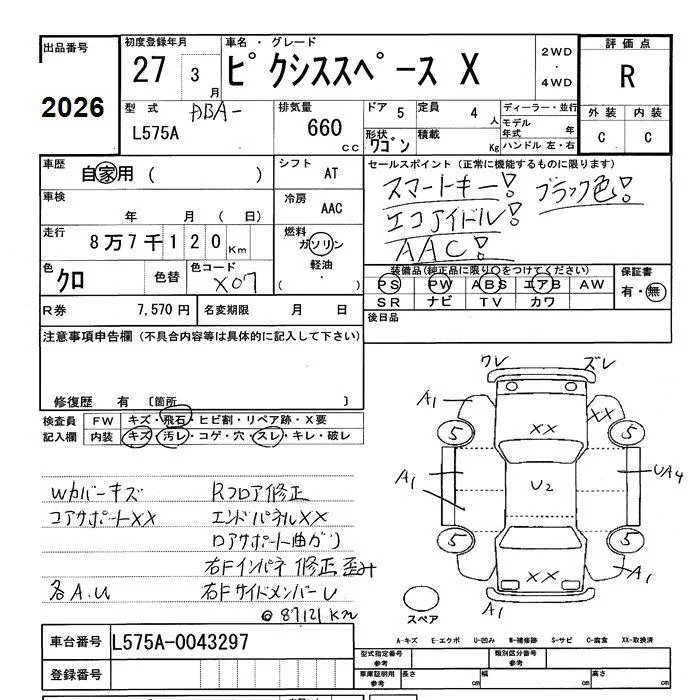 出品番号
2026
初度登録年月
27 3月
車名・グレード
ピクシススペース X
2WD・4WD
評価点
R
外装 内装
C C
型式 DBA-
L575A
排気量
660 cc
ドア 5
定員 4人
形状 ワゴン
積載 Kg
ディーラー・並行
モデル年式 年
ハンドル 左・右
車歴 自家用 ( )
シフト AT
車検 年 月 ( 日)
冷房 AAC
走行 8万7千120Km
燃料 ガソリン
軽油
・
( )
色 クロ 色替 色コード X07
セールスポイント (正常に機能するものに限ります)
スマートキー! ブラック色!
エコアイドル!
AAC!
装備品(純正品に限り○をつけてください)
PS PW ABS エアB AW
SR ナビ TV カワ
保証書
有・無
後日品
R券 7,570円
名変期限 月 日
注意事項申告欄 (不具合内容等は具体的に記入して下さい)
修復歴 有 〔箇所 〕
検査員記入欄
FW キズ・飛石・ヒビ割・リペア跡・X要
内装 キズ・汚レ・コゲ・穴・スレ・キレ・破レ
Wカバーキズ Rフロア修正
コアサポートXX エンドパネルXX
ロアサポート曲がり
右Fインパネ 修正 歪み
各A.U 右FサイドメンバーU
@87121km
ワレ ズレ
A1 XX XX
5 5
A1 U2 UA4
A1
5 5
XX A1
A1
スペア
A-キズ E-エクボ U-凹み W-補修跡 S-サビ C-腐食 XX-取換済
車台番号 L575A-0043297
登録番号
型式指定番号 参考
類別区分番号 参考
車庫証明用 参考
長さ cm 幅 cm 高さ cm